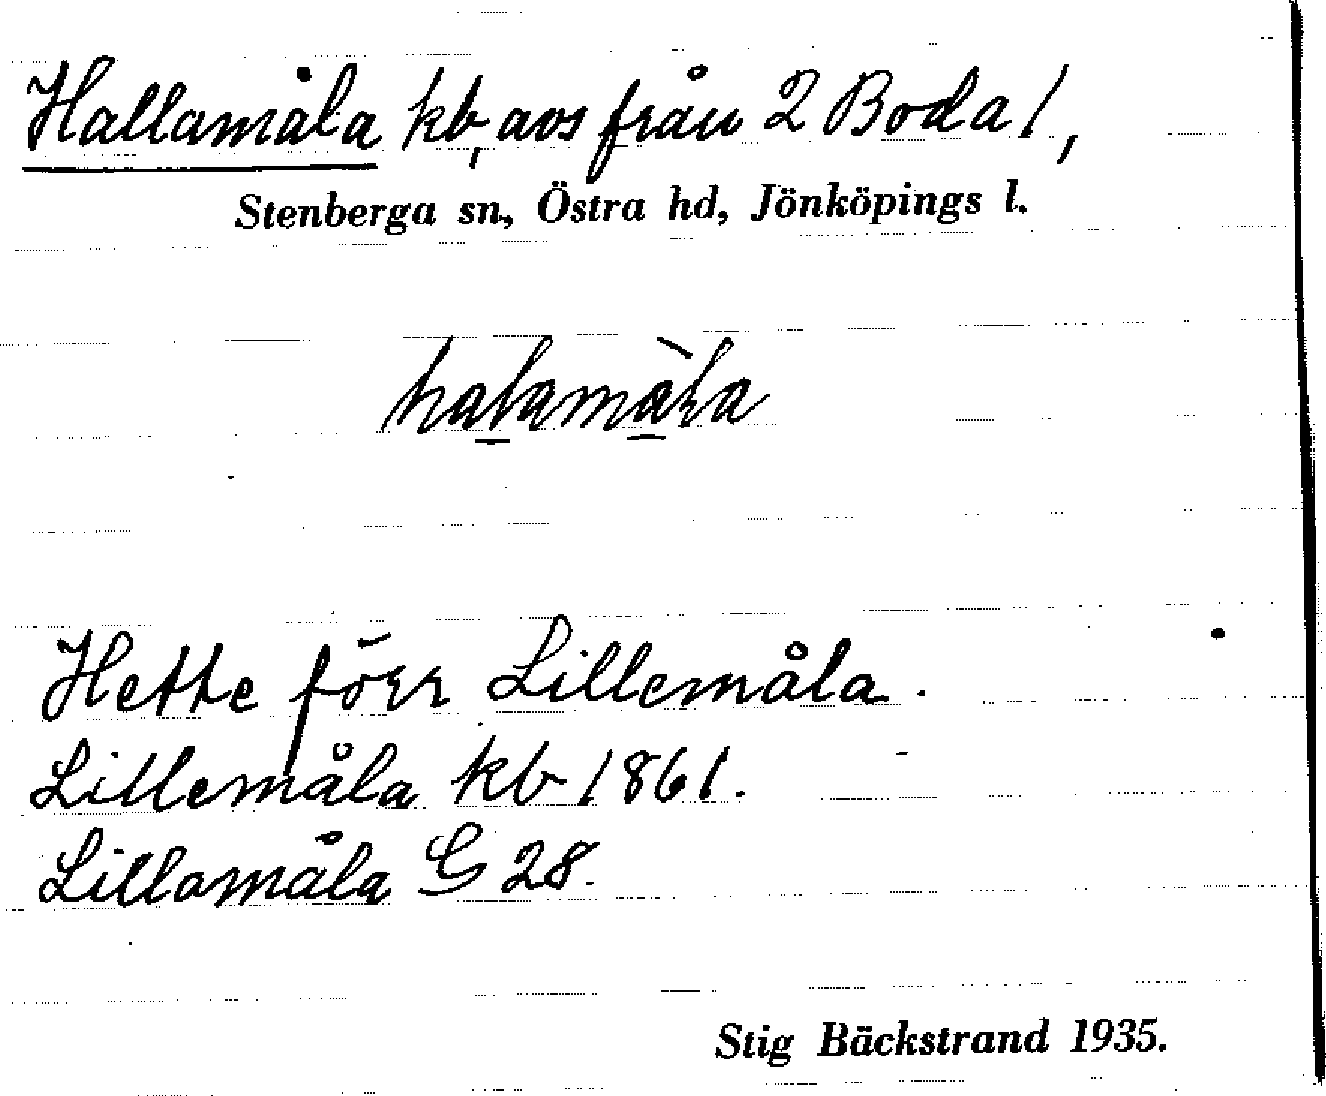 Hallamåla kb, avs från 2 Boda 1,
Stenberga sn, Östra hd, Jönköpings l.
halamàla
Hette förr Lillemåla.
Lillemåla kb 1861.
Lillamåla G 28.
Stig Bäckstrand 1935.